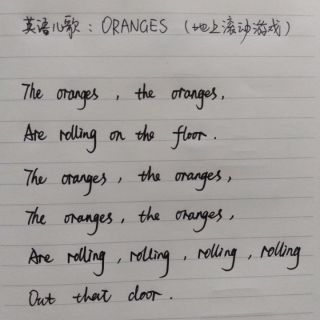 英语儿歌：ORANGES （地上滚动游戏）
The oranges , the oranges,
Are rolling on the floor.
The oranges , the oranges,
The oranges , the oranges,
Are rolling , rolling , rolling , rolling
Out that door .